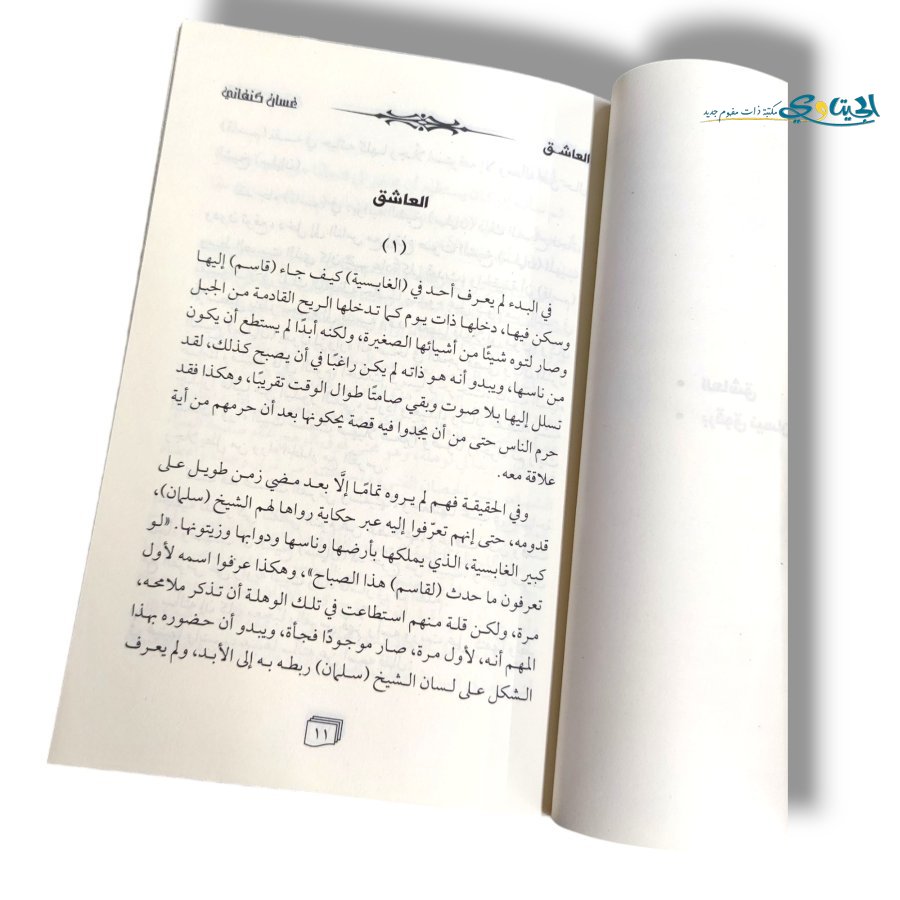 غسان كنفاني
العاشق
العاشق
(١)
في البدء لم يعرف أحد في (الغابسية) كيف جاء (قاسم) إليها
وسكن فيها، دخلها ذات يوم كما تدخلها الريح القادمة من الجبل
وصار لتوه شيئًا من أشيائها الصغيرة، ولكنه أبدًا لم يستطع أن يكون
من ناسها، ويبدو أنه هو ذاته لم يكن راغبًا في أن يصبح كذلك، لقد
تسلل إليها بلا صوت وبقي صامتًا طوال الوقت تقريبًا، وهكذا فقد
حرم الناس حتى من أن يجدوا فيه قصة يحكونها بعد أن حرمهم من أية
علاقة معه.
وفي الحقيقة فهم لم يروه تمامًا إلَّا بعد مضي زمن طويل على
قدومه، حتى إنهم تعرّفوا إليه عبر حكاية رواها لهم الشيخ (سلمان)،
كبير الغابسية، الذي يملكها بأرضها وناسها ودوابها وزيتونها. «لو
تعرفون ما حدث (لقاسم) هذا الصباح»، وهكذا عرفوا اسمه لأول
مرة، ولكن قلة منهم استطاعت في تلك الوهلة أن تذكر ملامحه،
المهم أنه، لأول مرة، صار موجودًا فجأة، ويبدو أن حضوره بهذا
الشكل على لسان الشيخ (سلمان) ربطه به إلى الأبد، ولم يعرف
١١
الجيتاوي
مكتبة ذات مفهوم جديد